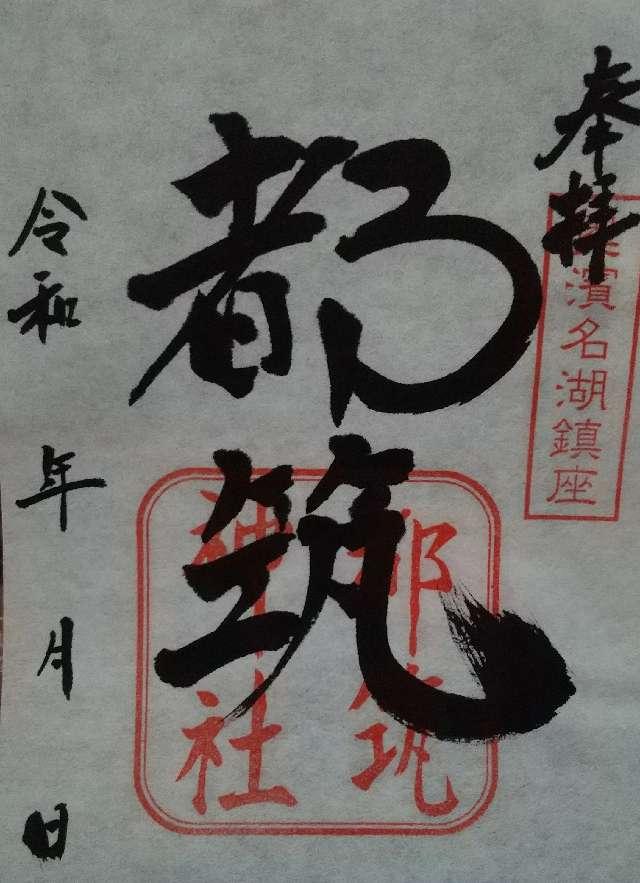 奉拝
濱名湖鎮座
都筑
都筑
神社
令和 年 月 日